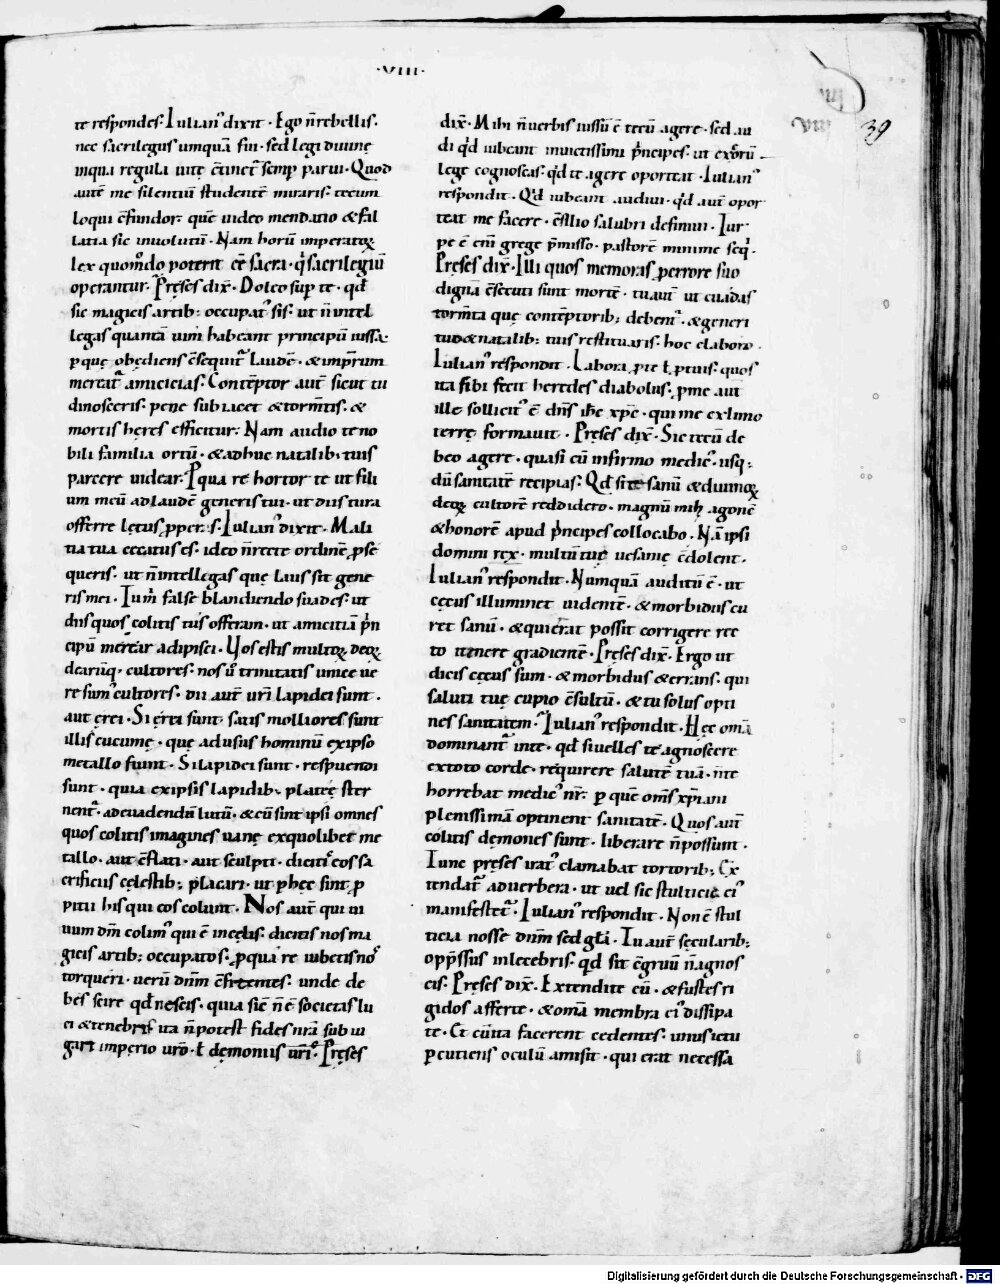 ·VIII·
39
te respondes· Iulian᾽ dixit· Ego n̄ rebellis·
nec sacrilegus umquā fui· sed legi diuinę
inqua regula uitę c̄tinet᷑ semp parui· Quod
autē me silentiū studentē miraris· tecum
loqui c̄fundor· quē uideo mendatio & fal
latia sic inuolutū· Nam horū imperatoꝝ
lex quom̊do poterit eē sacra· q̇ sacrilegiū
operantur· Pręses dix̄· Doleo sup te· qđ
sic magicis artib; occupat᾽ sis· ut n̄ intel
legas quantā uim habeant principum iussa·
ꝑquę obędiens c̄sequit᷑ laudē· & imp̄rum
mercat᷑ amicicias· Contēptor autē sicut tu
dinosceris· penę subiacet & torm̄tis· &
mortis hęres efficitur· Nam audio te no
bili familia ortū· & adhuc natalib; tuis
parcere uidear· Pqua re hortor te ut fili
um meū ad laudem generis tui· ut diis tura
offerre lętus ꝓperes· Iulian᾽ dixit· Mali
tia tua cecatus es· ideo n̄ recte ordinē ꝓse
queris· ut n̄ intellegas quę laus sit gene
ris mei· Tum̄ false blandiendo suades· ut
diis quos colitis tus offeram· ut amicitiā p̄n
cipū merear adipisci· Vos estis multoꝝ deoꝝ
dearūq· cultores· nos ů trinitatis unicę ue
re sum᾽ cultores· dii autē uri lapidei sunt·
aut ęrei· Si ęrei sunt· satis molliores sunt
illis cucumę· quę ad usus hominū ex ipso
metallo fiunt· Si lapidei sunt· respuendi
sunt· quia ex ipsis lapidib; platęę ster
nent᷑· ad euadendū lutū· & cū sint ipsi omnes
quos colitis imagines uanę ex quolibet me
tallo· aut c̄flati· aut sculpti· dicitis eos sa
crificiis cęlestib; placari· ut p hęc sint p
pitii his qui eos colunt· Nos autē qui ui
uum dm̄ colim᾽ qui ē in cęlis· dicitis nos ma
gicis artib; occupatos· ꝓqua re iubetis nos
torqueri· uerū dnm̄ c̄fitentes· unde de
bes scire qđ nescis· quia sic n̄ ē societas lu
ci & tenebris ita n̄ potest fides nrā subiu
gari imperio uro· ł demoniis uris· Pręses
dix̄· Mihi n̄ uerbis iussū ē tecū agere· sed au
di q̇d iubeant inuictissimi p̄ncipes· ut ex horū
lege cognoscas· q̇d te agere oporteat· Iulian᾽
respondit· Q̇d iubeant audiui· q̇d autē opor
teat me facere· c̄silio salubri definiui· Tur
pe ē eni grege p̄misso· pastorē minime seq·
Pręses dix̄· Illi quos memoras p errore suo
dignā c̄secuti sunt mortē· tu autē ut euadas
torm̄ta quę contēptorib; debent᷑· & generi
tuo & natalib; tuis restituaris· hoc elaboro·
Iulian᾽ respondit· Labora ꝓ te ł ꝓ tuis· quos
ita sibi fecit heredes diabolus· ꝓ me autē
ille sollicit᾽ ē dn̄s ihc xpc· qui me ex limo
terrę formauit· Pręses dix̄· Sic tecū de
beo agere· quasi cū infirmo medic᾽· usq;
dū sanitatē recipias· Qđ si te sanū & diuinoꝝ
deoꝝ cultorē reddidero· magnū mih agonē
& honorē apud p̄ncipes collocabo· Nā ipsi
domini rex· multū tuę uesanię c̄dolent·
Iulian᾽ respondit· Numquā auditū ē· ut
cęcus illuminet uidentē· & morbidus cu
ret sanū· & qui errat possit corrigere rec
to itenere gradientē· Pręses dix̄· Ergo ut
dicis cęcus sum· & morbidus & errans· qui
saluti tuę cupio c̄sultū· & tu solus opti
nes sanitatem· Iulian᾽ respondit· Hęc omā
dominant᷑ in te· qđ si uelles te agnoscere
ex toto corde· requirere salutē tuā· n̄ te
horrebat medic᾽ nr· ꝑ quē oms xp̄iani
plenissimā optinent sanitatē· Quos autē
colitis dęmones sunt· liberare n̄ possunt·
Tunc pręses irat᾽ clamabat tortorib; Ex
tendat᷑ ad uerbera· ut uel sic stulticia ei᾽
manifestet᷑· Iulian᾽ respondit· Non ē stul
ticia nosse dnm̄ sed gła· Tu autē sęcularib;
opp̄ssus inlecebris· qđ sit c̄gruū n̄ agnos
cis· Pręses dix̄· Extendite eū· & fustes ri
gidos afferte· & omā membra ei᾽ dissipa
te· Et cūita facerent cedentes· unus ictu
ꝑcutiens oculū amisit· qui erat necessa
Digitalisierung gefördert durch die Deutsche Forschungsgemeinschaft - DFG